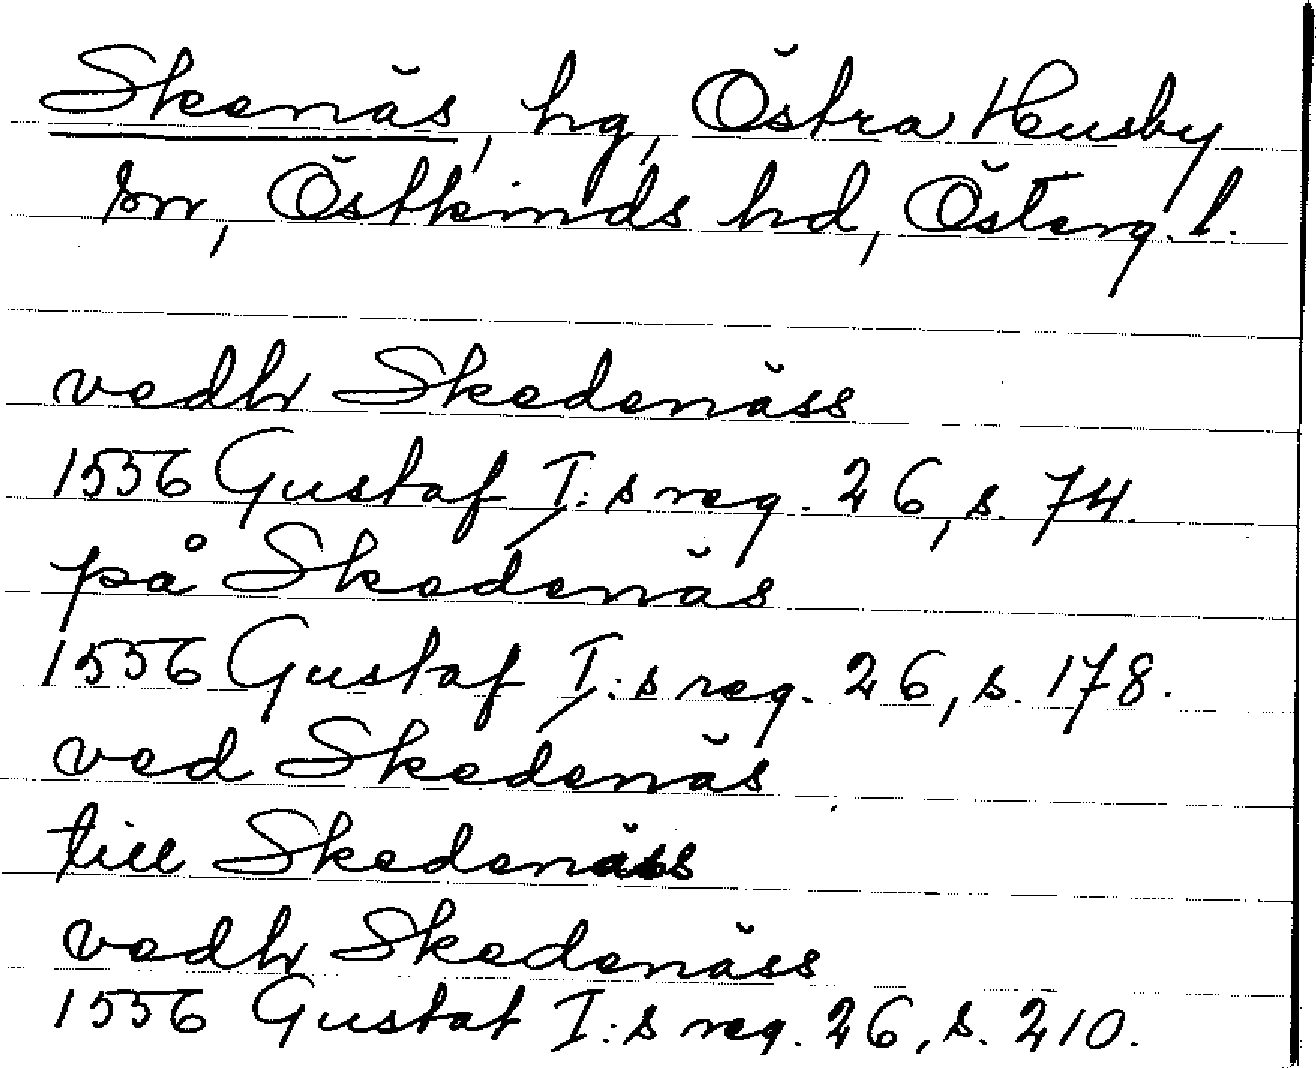 Skenäs, hg, Östra Husby
sn, Östkinds hd, Österg. l.
vedh Skedenäss
1556 Gustaf I:s reg. 26, s. 74.
på Skedenäs
1556 Gustaf I:s reg. 26, s. 178.
ved Skedenäs
till Skedenäss
vedh Skedenäss
1556 Gustaf I:s reg. 26, s. 210.